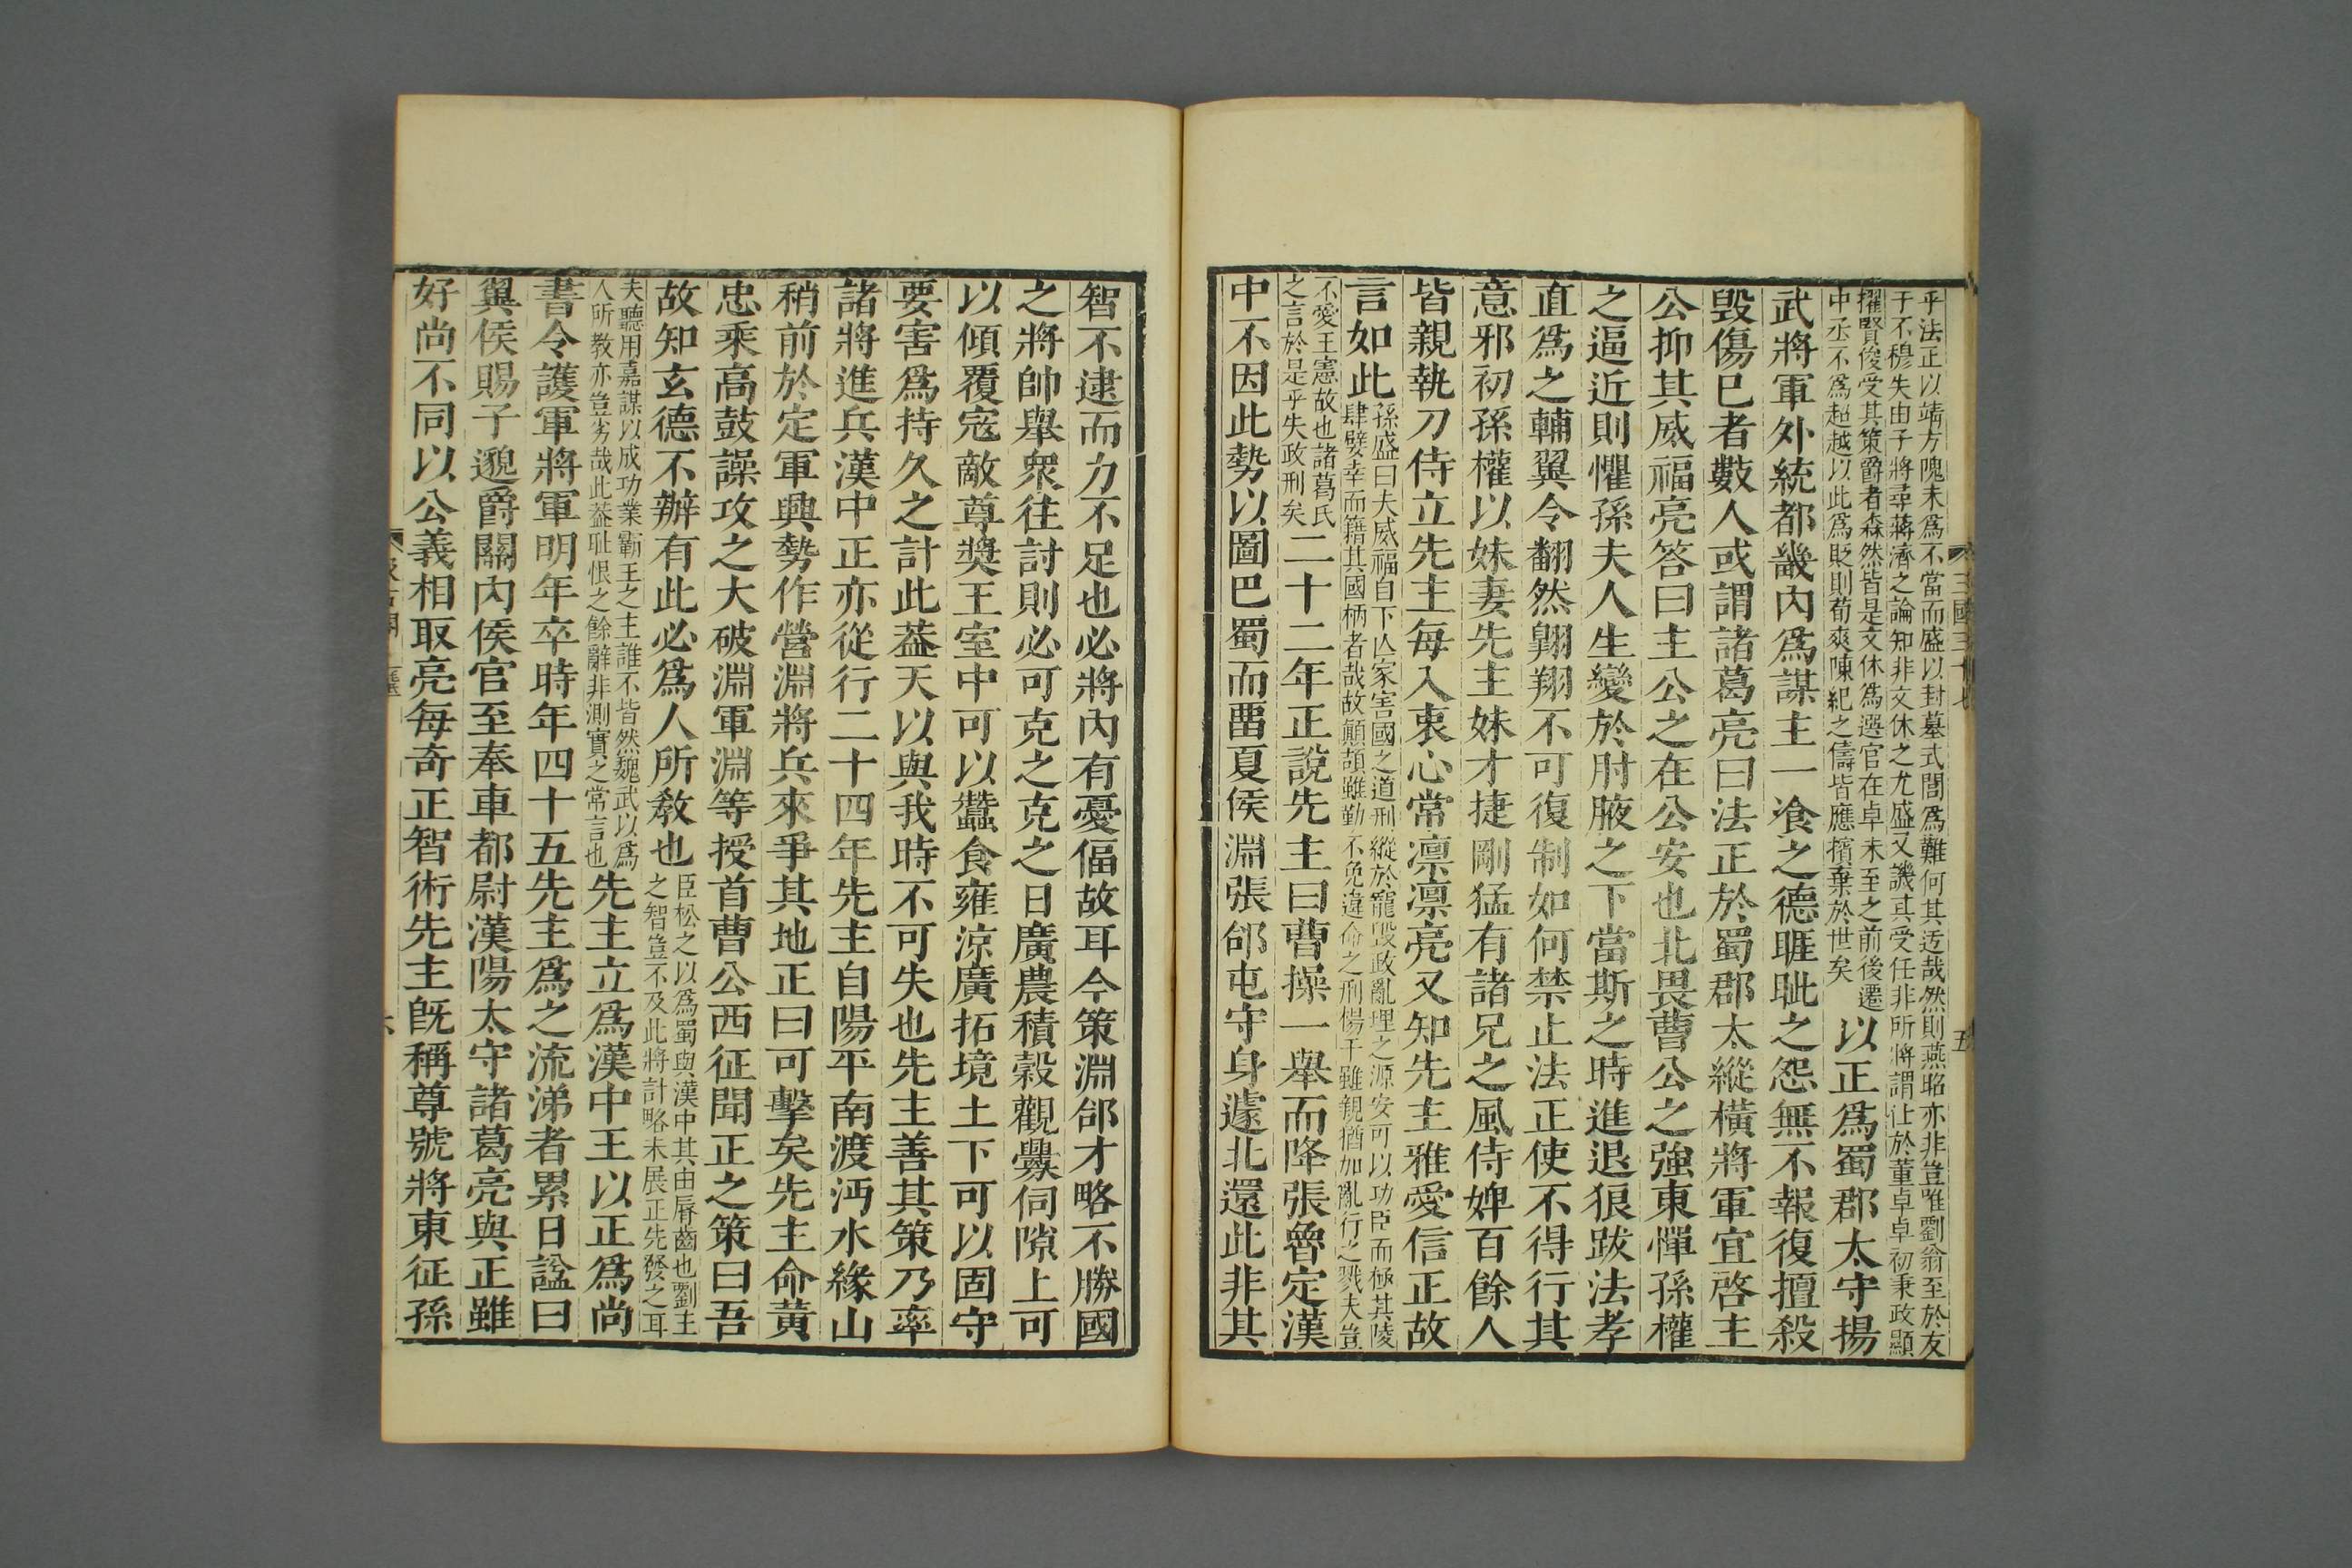 乎法正以靖方隗未爲不當而盛以封墓式閭爲難何其迃哉然則燕昭亦非豈唯劉翁至於友
于不穆失由子將尋蔣濟之論知非文休之尤盛又譏其受任非所將謂仕於董卓卓初秉政顯
擢賢俊受其策爵者森然皆是文休爲選官在卓未至之前後遷
中丞不爲超越以此爲貶則荀爽陳紀之儔皆應擯棄於世矣
以正爲蜀郡太守揚
武將軍外統都畿內爲謀主一飡之德睚眦之怨無不報復擅殺
毀傷巳者數人或謂諸葛亮曰法正於蜀郡太縱橫將軍宜啓主
公抑其威福亮答曰主公之在公安也北畏曹公之強東憚孫權
之逼近則懼孫夫人生變於肘腋之下當斯之時進退狼跋法孝
直爲之輔翼令翻然翺翔不可復制如何禁止法正使不得行其
意邪初孫權以妹妻先主妹才捷剛猛有諸兄之風侍婢百餘人
皆親執刀侍立先主每入衷心常凛凛亮又知先主雅愛信正故
言如此
孫盛曰夫威福自下亾家害國之道刑縱於寵毀政亂理之源安可以功臣而極其陵
肆嬖幸而籍其國柄者哉故顛頡雖勤不免違命之刑楊干雖親猶加亂行之戮夫豈
不愛王憲故也諸葛氏
之言於是乎失政刑矣
二十二年正說先主曰曹操一舉而降張魯定漢
中不因此勢以圖巴蜀而畱夏侯淵張郃屯守身遽北還此非其
三國三十七
五
智不逮而力不足也必將內有憂偪故耳今策淵郃才略不勝國
之將帥舉衆往討則必可克之克之日廣農積穀觀釁伺隙上可
以傾覆宼敵尊奬王室中可以蠶食雍涼廣拓境土下可以固守
要害爲持久之計此葢天以與我時不可失也先主善其策乃率
諸將進兵漢中正亦從行二十四年先主自陽平南渡沔水緣山
稍前於定軍興勢作營淵將兵來爭其地正曰可擊矣先主命黃
忠乘高鼓譟攻之大破淵軍淵等授首曹公西征聞正之策曰吾
故知玄德不辦有此必爲人所敎也
臣松之以爲蜀與漢中其由脣齒也劉主
之智豈不及此將計略未展正先發之耳
夫聽用嘉謀以成功業霸王之主誰不皆然魏武以爲
人所教亦豈劣哉此葢耻恨之餘辭非測實之常言也
先主立爲漢中王以正爲尚
書令護軍將軍明年卒時年四十五先主爲之流涕者累日諡曰
翼侯賜子邈爵關內侯官至奉車都尉漢陽太守諸葛亮與正雖
好尚不同以公義相取亮每奇正智術先主旣稱尊號將東征孫